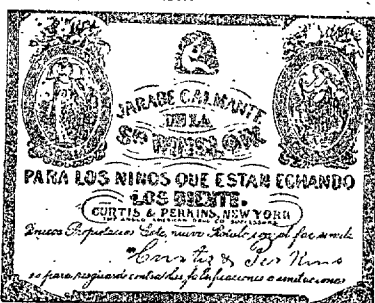 JARABE CALMANTE
DE LA
SRA WINSLOW.
PARA LOS NIÑOS QUE ESTAN ECHANDO
LOS DIENTE.
CURTIS & PERKINS, NEW YORK
Unicos Propietarios Este nuevo
Curtis & Perkins
es para resguardo contra las falsificaciones o imitaciones